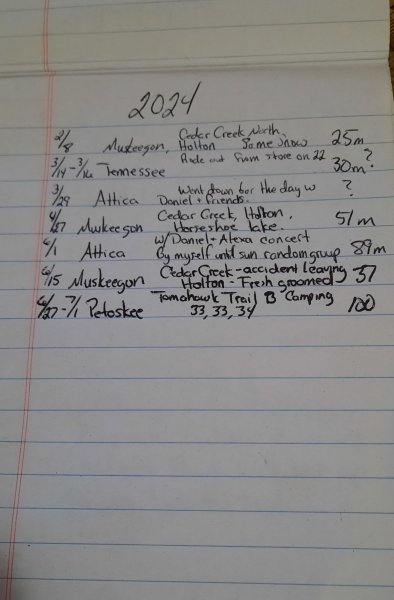 2024
2/8 Muskeegon, Cedar Creek North, Holton Some Snow 25m
3/14-3/16 Tennessee Rode out from store on 22 30m?
3/29 Attica Went down for the day w Daniel + friends. ?
4/27 Muskeegon Cedar Creek, Holton, Horseshoe lake. 51m
6/1 Attica w/ Daniel + Alexa concert By myself until sun random group 89m
6/15 Muskeegon Cedar Creek - accident leaving Holton - Fresh groomed 37
6/27-7/1 Petoskee Tomahawk Trail B Camping 33, 33, 34 100